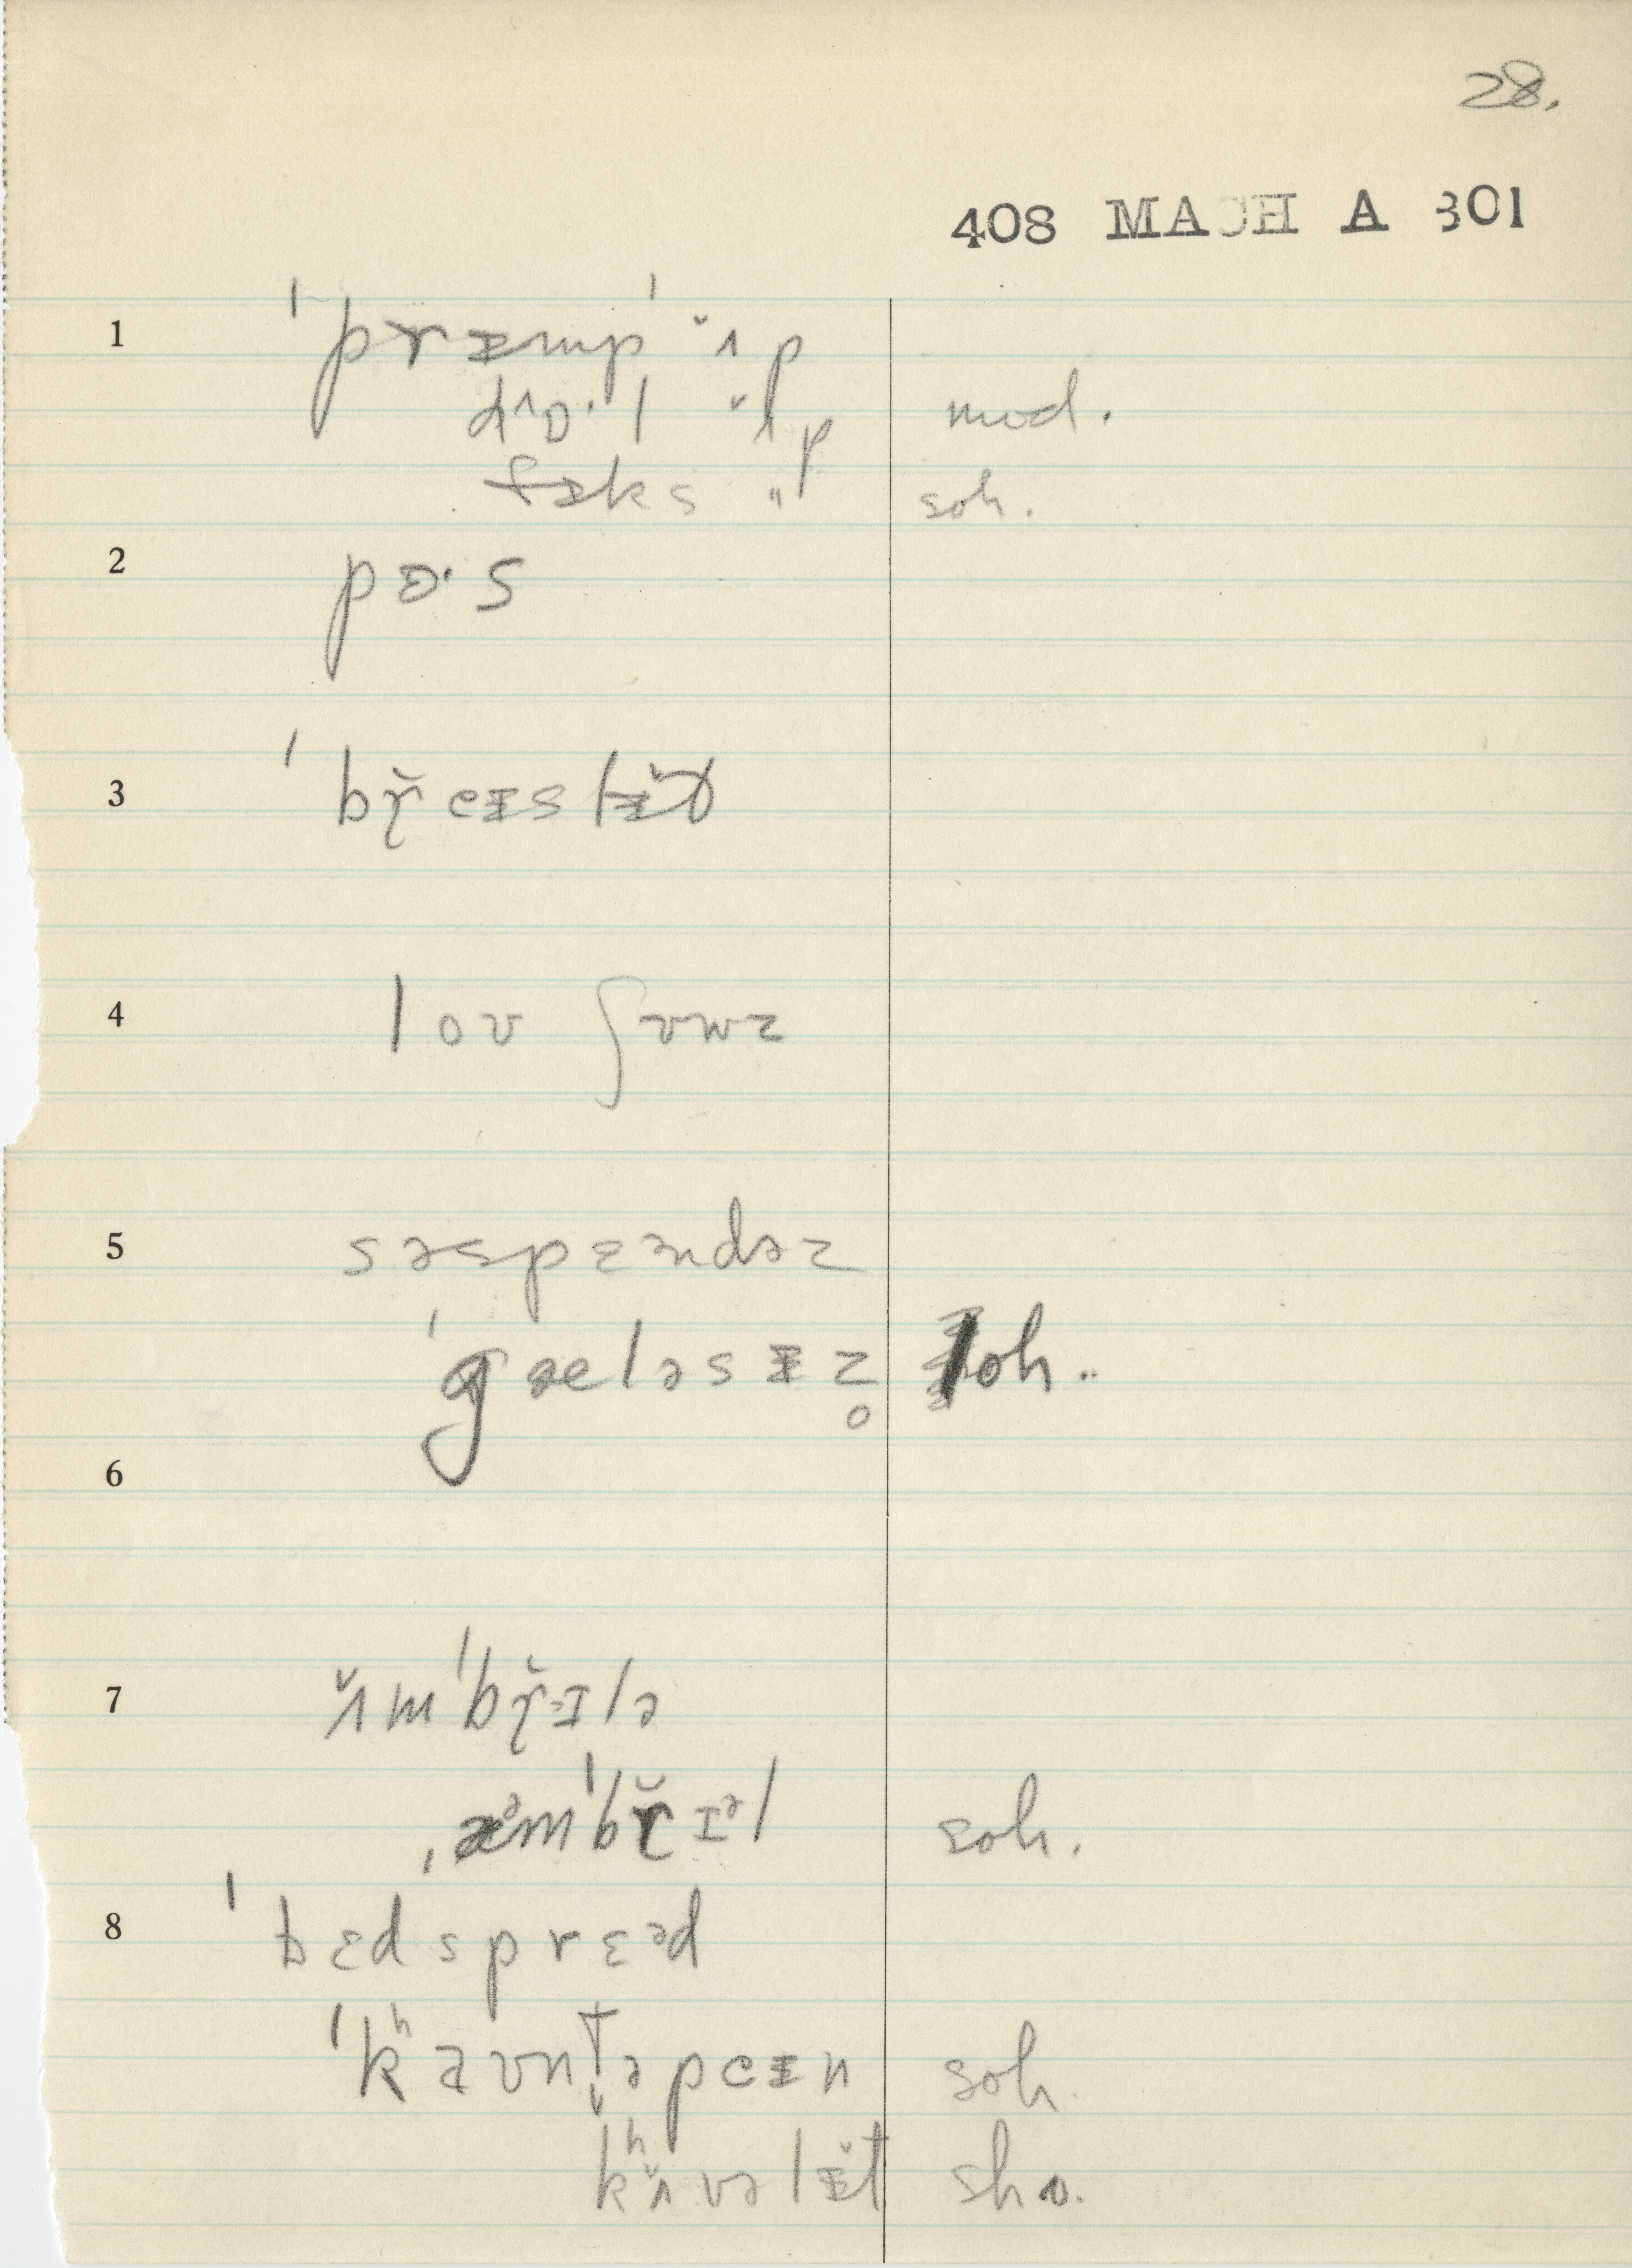 28.
408 MACH A 301
1 ˈpræmpˈ ʌ̆p
dʌɒ·l ʌ̆p mod.
fɪks " soh.
2 pɒ·s
3 ˈbɤ̆eɪslɪ̆t
4 loʊ ʃuwz
5 səspɛəndəz
ˈgæeləsɪz̥ soh..
6
7 ʌ̆mˈbɤ̆ɪlə
ˌæəmˈbɤ̆ɪəl soh.
8 ˈbɛdsprɛəd
ˈkʰaʊnt̬əpeɪn soh.
kʰʌ̆vəlɪ̆t sho.